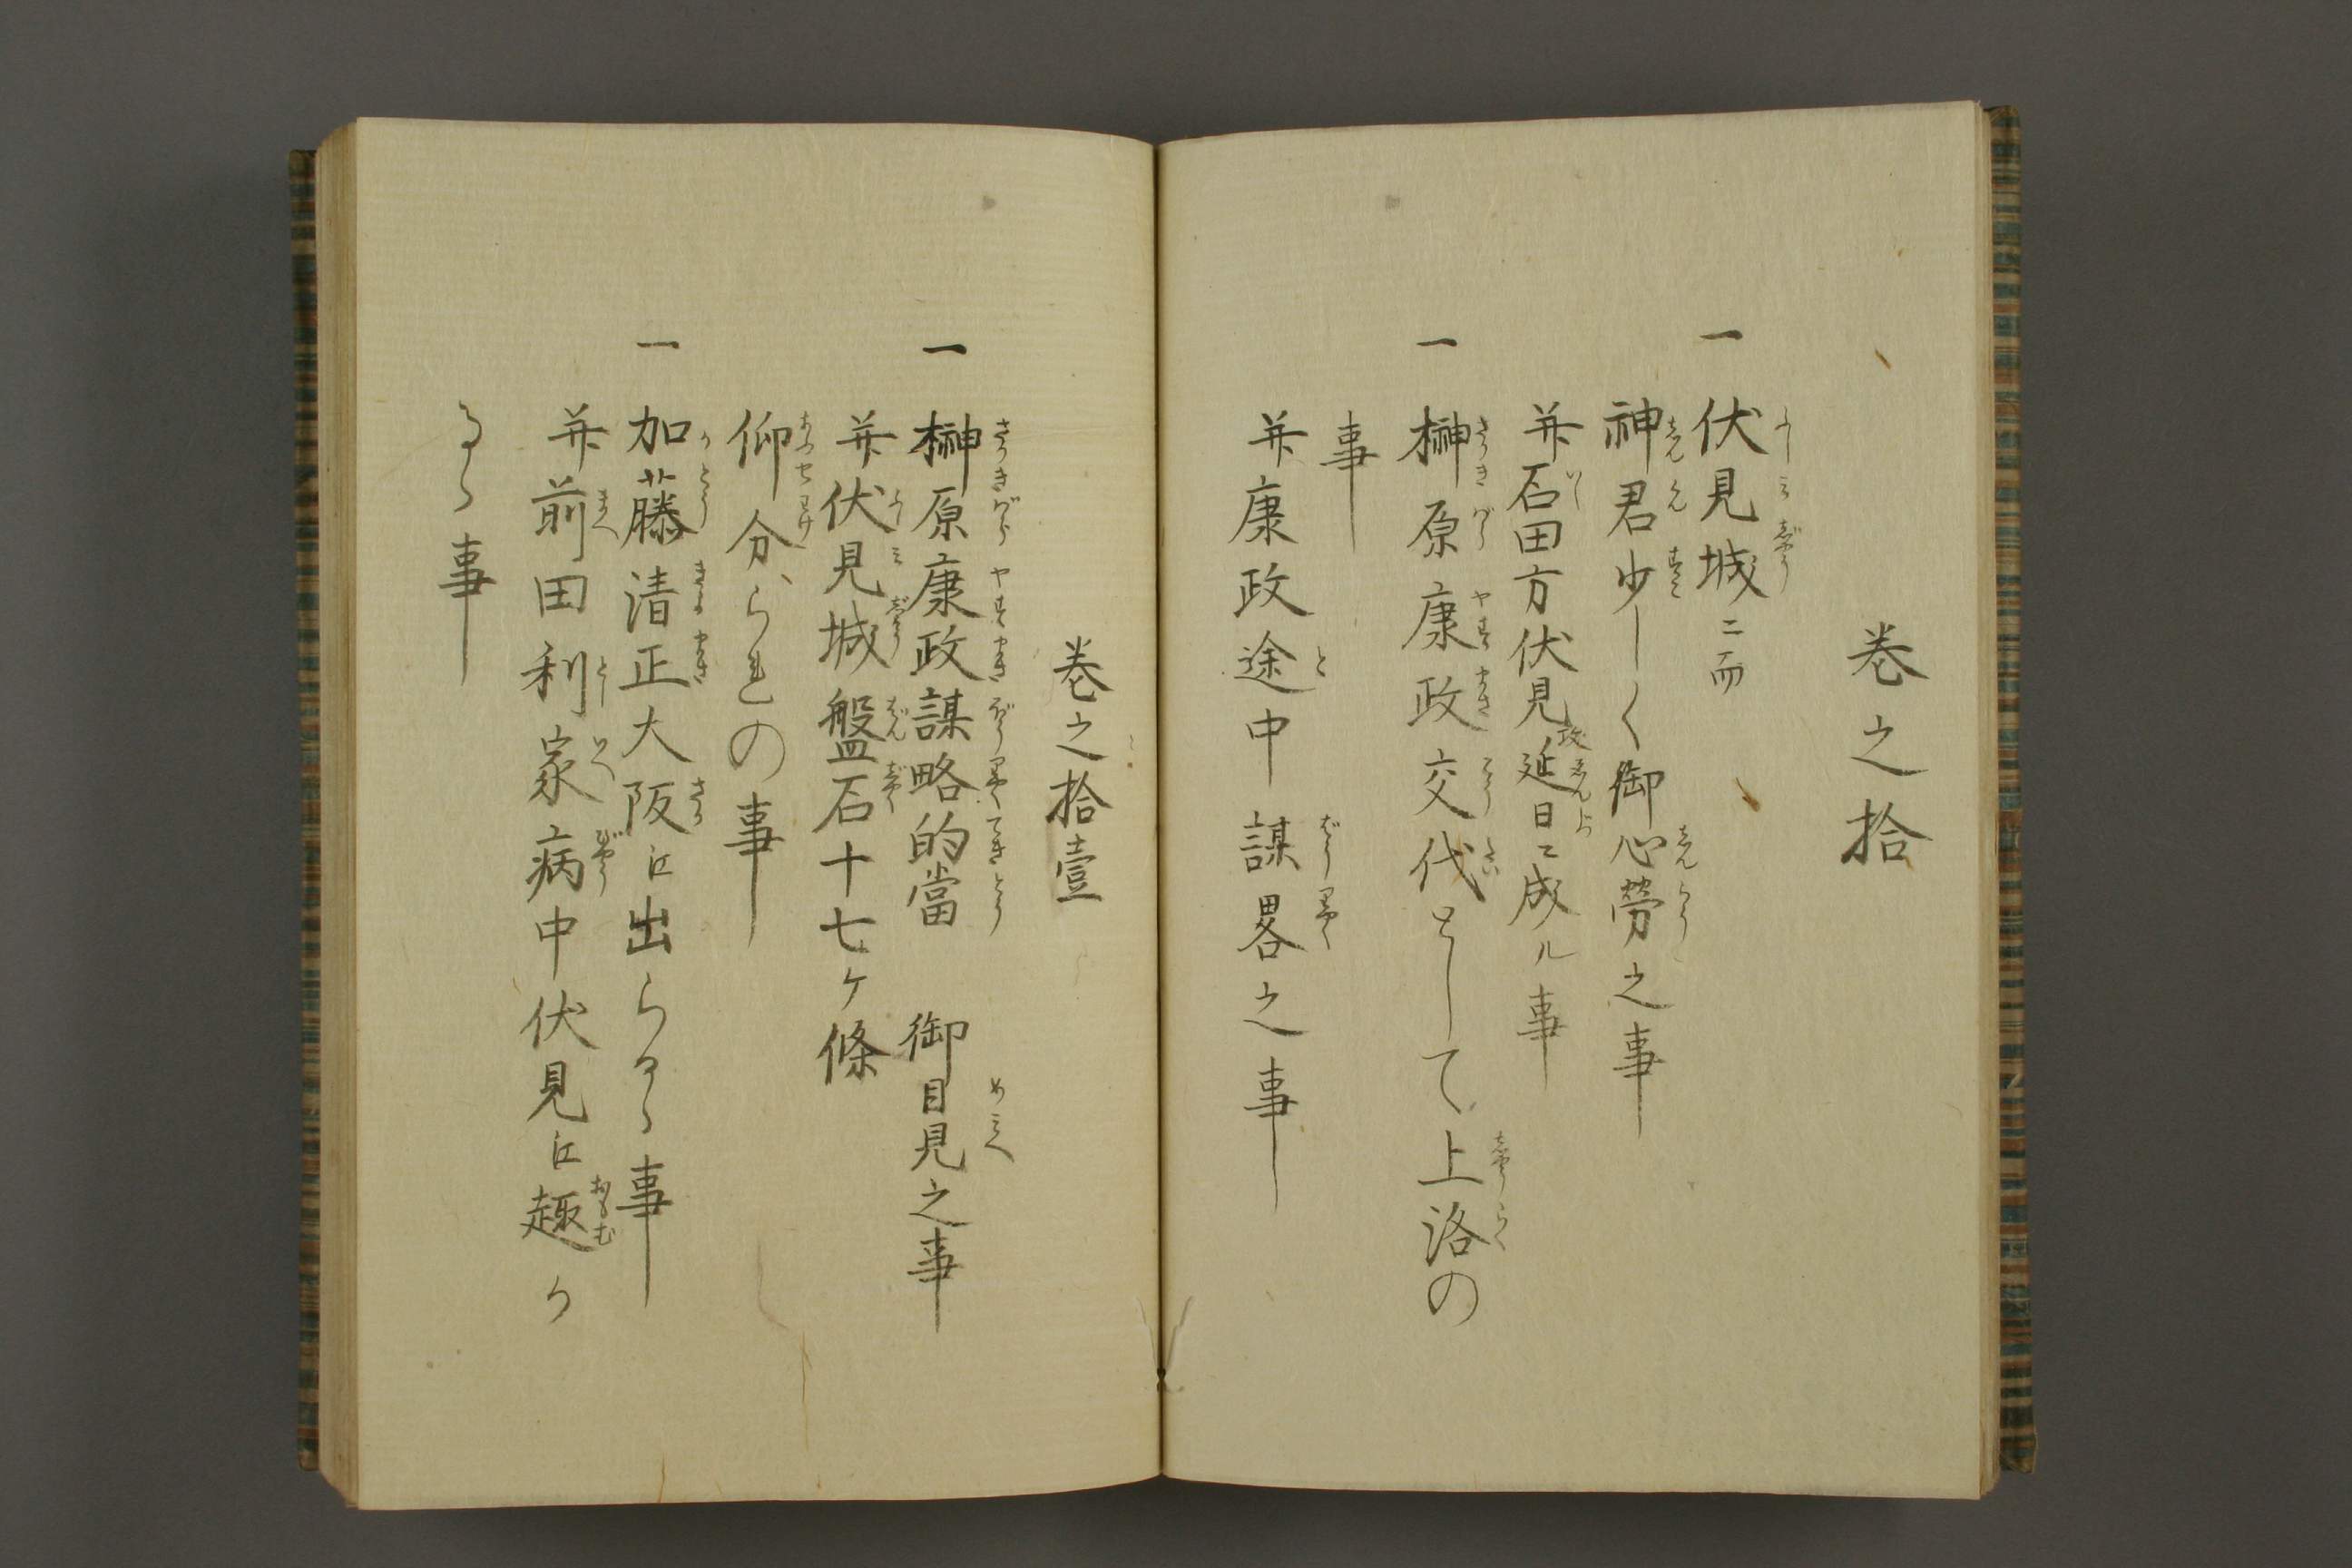 巻之拾
一 伏見城ニ而
神君少しく御心労之事
并石田方伏見攻延日ニ成ル事
一 榊原康政交代として上洛の
事
并康政途中謀畧之事
巻之拾壹
一 榊原康政謀略的當 御目見之事
并伏見城盤石十七ケ條
仰分られの事
一 加藤清正大阪江出らるゝ事
并前田利家病中伏見江趣か
るゝ事